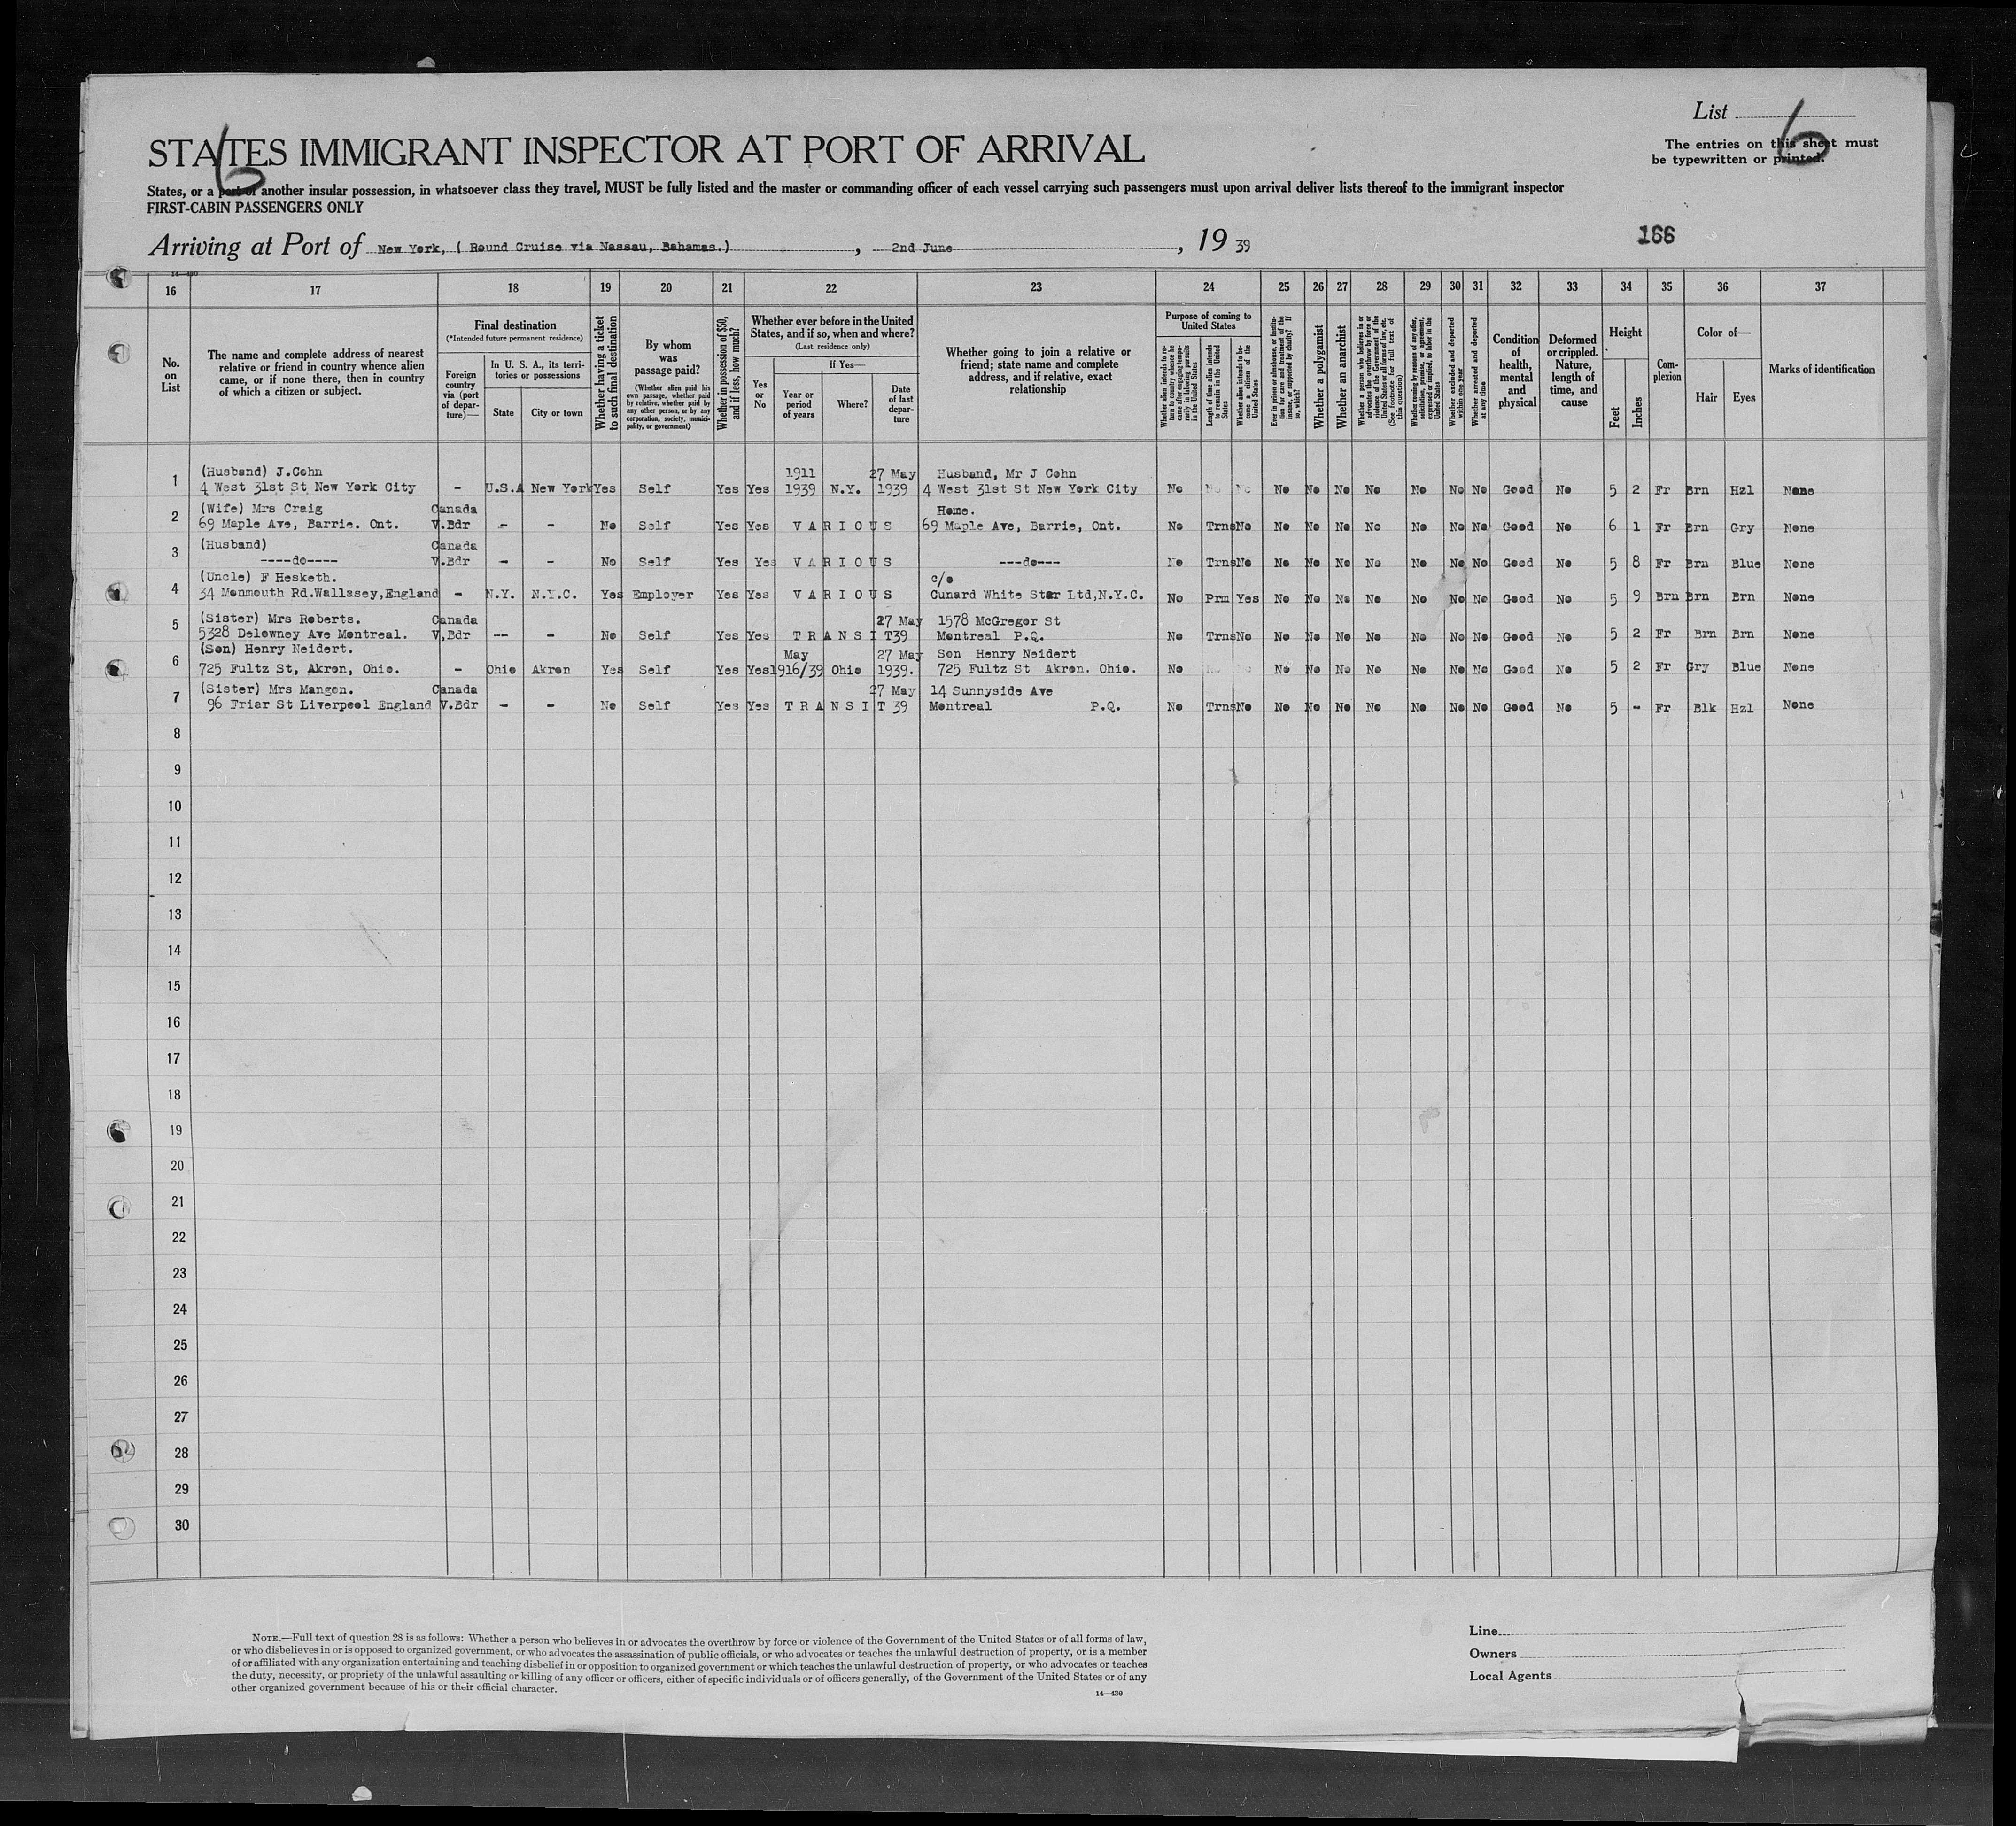 List 6
The entries on this sheet must
be typewritten or printed.
6
STATES IMMIGRANT INSPECTOR AT PORT OF ARRIVAL
States, or a port of another insular possession, in whatsoever class they travel, MUST be fully listed and the master or commanding officer of each vessel carrying such passengers must upon arrival deliver lists thereof to the immigrant inspector
FIRST-CABIN PASSENGERS ONLY
Arriving at Port of New York, ( Round Cruise via Nassau, Bahamas.) , 2nd June , 19 39
166
14—430
16 17 18 19 20 21 22 23 24 25 26 27 28 29 30 31 32 33 34 35 36 37
No. on List
The name and complete address of nearest
relative or friend in country whence alien
came, or if none there, then in country
of which a citizen or subject.
Final destination
(*Intended future permanent residence)
Foreign country via (port of departure)—
In U. S. A., its territories or possessions
State
City or town
Whether having a ticket to such final destination
By whom was passage paid?
(Whether alien paid his own passage, whether paid by relative, whether paid by any other person, or by any corporation, society, municipality, or government)
Whether in possession of $50, and if less, how much?
Whether ever before in the United
States, and if so, when and where?
(Last residence only)
Yes or No
If Yes—
Year or period of years
Where?
Date of last departure
Whether going to join a relative or
friend; state name and complete
address, and if relative, exact
relationship
Purpose of coming to United States
Whether alien intends to return to country whence he came after engaging temporarily in laboring pursuits in the United States
Length of time alien intends to remain in the United States
Whether alien intends to become a citizen of the United States
Ever in prison or almshouse, or institution for care and treatment of the insane, or supported by charity? If so, which?
Whether a polygamist
Whether an anarchist
Whether a person who believes in or advocates the overthrow by force or violence of the Government of the United States or all forms of law, etc. (See footnote for full text of this question)
Whether coming by reasons of any offer, solicitation, promise, or agreement, expressed or implied, to labor in the United States
Whether excluded and deported within one year
Whether arrested and deported at any time
Condition of health, mental and physical
Deformed or crippled. Nature, length of time, and cause
Height
Feet
Inches
Complexion
Color of—
Hair
Eyes
Marks of identification
(Husband) J.Cohn 1911 27 May Husband, Mr J Cohn
1 4 West 31st St New York City - U.S.A New York Yes Self Yes Yes 1939 N.Y. 1939 4 West 31st St New York City No No No No No No No No No No Good No 5 2 Fr Brn Hzl None
(Wife) Mrs Craig Canada Home.
2 69 Maple Ave, Barrie. Ont. V.Bdr - - No Self Yes Yes VARIOUS 69 Maple Ave, Barrie, Ont. No Trns No No No No No No No No Good No 6 1 Fr Brn Gry None
(Husband) Canada
3 ----do---- V.Bdr - - No Self Yes Yes VARIOUS ---do--- No Trns No No No No No No No No Good No 5 8 Fr Brn Blue None
(Uncle) F Hesketh. c/o
4 34 Monmouth Rd.Wallasey,England - N.Y. N.Y.C. Yes Employer Yes Yes VARIOUS Cunard White Star Ltd,N.Y.C. No Prm Yes No No No No No No No Good No 5 9 Brn Brn Brn None
(Sister) Mrs Roberts. Canada 27 May 1578 McGregor St
5 5328 Delowney Ave Montreal. V,Bdr -- - No Self Yes Yes TRANSIT 39 Montreal P.Q. No Trns No No No No No No No No Good No 5 2 Fr Brn Brn None
(Son) Henry Neidert. May 27 May Son Henry Neidert
6 725 Fultz St, Akron, Ohio. - Ohio Akron Yes Self Yes Yes 1916/39 Ohio 1939. 725 Fultz St Akron. Ohio. No No No No No No No No No No Good No 5 2 Fr Gry Blue None
(Sister) Mrs Mangon. Canada 27 May 14 Sunnyside Ave
7 96 Friar St Liverpool England V.Bdr - - No Self Yes Yes TRANSIT 39 Montreal P.Q. No Trns No No No No No No No No Good No 5 - Fr Blk Hzl None
8
9
10
11
12
13
14
15
16
17
18
19
20
21
22
23
24
25
26
27
28
29
30
NOTE.—Full text of question 28 is as follows: Whether a person who believes in or advocates the overthrow by force or violence of the Government of the United States or of all forms of law,
or who disbelieves in or is opposed to organized government, or who advocates the assassination of public officials, or who advocates or teaches the unlawful destruction of property, or is a member
of or affiliated with any organization entertaining and teaching disbelief in or opposition to organized government or which teaches the unlawful destruction of property, or who advocates or teaches
the duty, necessity, or propriety of the unlawful assaulting or killing of any officer or officers, either of specific individuals or of officers generally, of the Government of the United States or of any
other organized government because of his or their official character.
14—430
Line
Owners
Local Agents